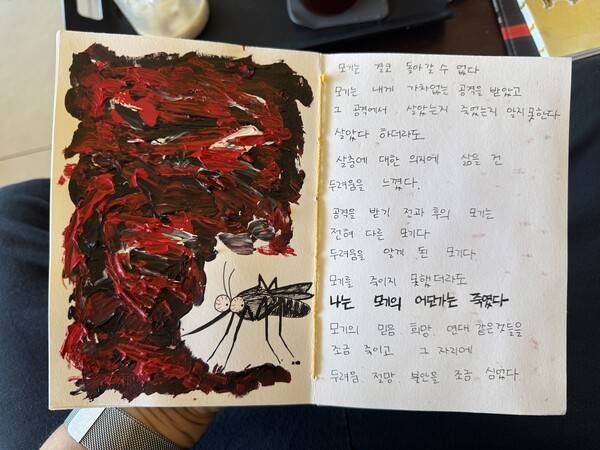 모기는 결코 돌아갈 수 없다
모기는 내게 가차없는 공격을 받았고
그 공격에서 살았는지 죽었는지 알지 못한다
살았다 하더라도
살충에 대한 의지에 삶을 건
두려움을 느꼈다.
공격을 받기 전과 후의 모기는
전혀 다른 모기다
두려움을 알게 된 모기다
모기를 죽이지 못했더라도
나는 모기의 어딘가는 죽였다
모기의 믿음 희망 연대 같은것들을
조금 죽이고 그 자리에
두려움 절망 불안을 조금 심었다.